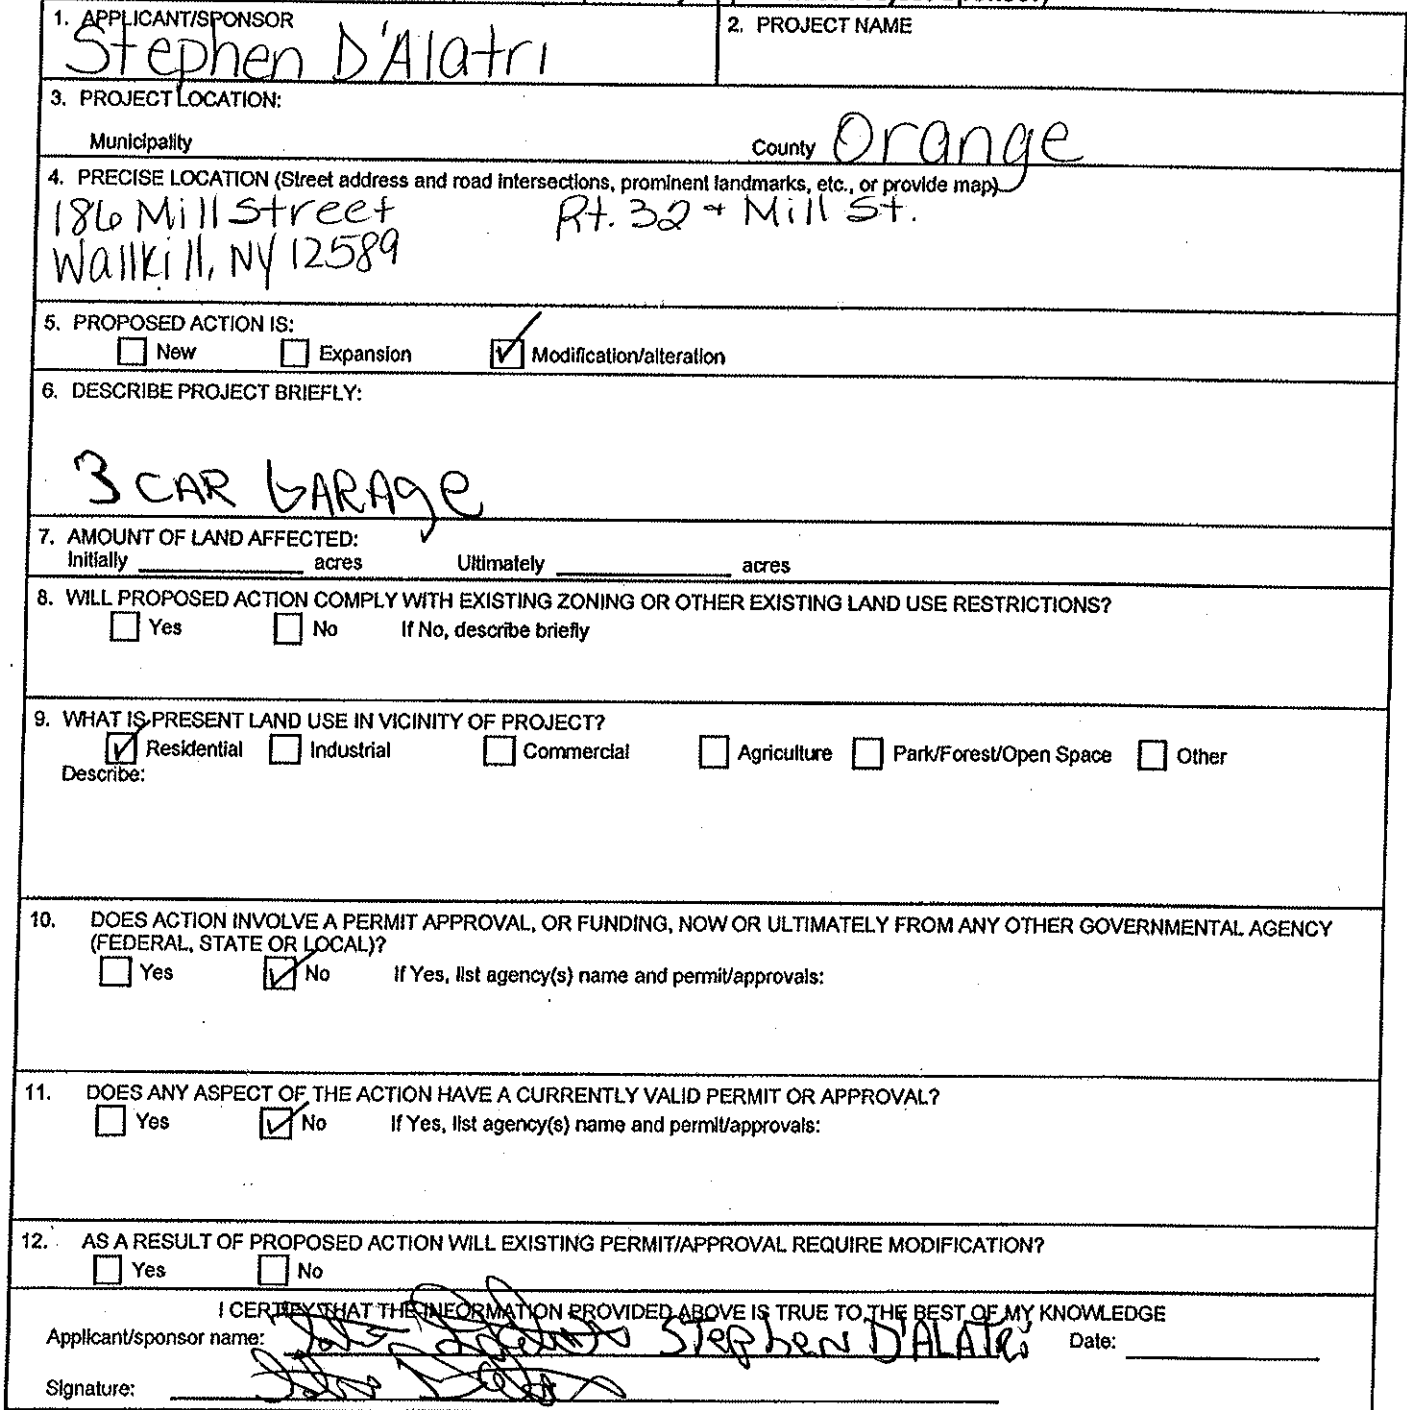 1. APPLICANT/SPONSOR
Stephen D'Alatri
2. PROJECT NAME
3. PROJECT LOCATION:
Municipality
County Orange
4. PRECISE LOCATION (Street address and road intersections, prominent landmarks, etc., or provide map)
186 Mill Street Rt. 32 + Mill St.
Wallkill, NY 12589
5. PROPOSED ACTION IS:
New Expansion Modification/alteration
6. DESCRIBE PROJECT BRIEFLY:
3 CAR GARAGe
7. AMOUNT OF LAND AFFECTED:
Initially acres Ultimately acres
8. WILL PROPOSED ACTION COMPLY WITH EXISTING ZONING OR OTHER EXISTING LAND USE RESTRICTIONS?
Yes No If No, describe briefly
9. WHAT IS PRESENT LAND USE IN VICINITY OF PROJECT?
Residential Industrial Commercial Agriculture Park/Forest/Open Space Other
Describe:
10. DOES ACTION INVOLVE A PERMIT APPROVAL, OR FUNDING, NOW OR ULTIMATELY FROM ANY OTHER GOVERNMENTAL AGENCY
(FEDERAL, STATE OR LOCAL)?
Yes No If Yes, list agency(s) name and permit/approvals:
11. DOES ANY ASPECT OF THE ACTION HAVE A CURRENTLY VALID PERMIT OR APPROVAL?
Yes No If Yes, list agency(s) name and permit/approvals:
12. AS A RESULT OF PROPOSED ACTION WILL EXISTING PERMIT/APPROVAL REQUIRE MODIFICATION?
Yes No
I CERTIFY THAT THE INFORMATION PROVIDED ABOVE IS TRUE TO THE BEST OF MY KNOWLEDGE
Applicant/sponsor name: STephen D'ALATRi Date:
Signature: